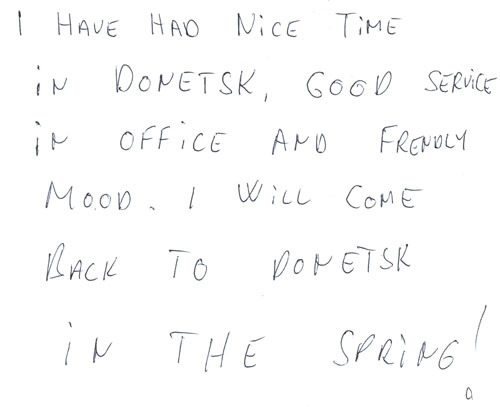 I HAVE HAD NiCE TiME
iN DONETSK, GOOD SERViCE
iN OFFiCE AND FRENDLY
MOOD. I WiLL COME
BACK TO DONETSK
iN THE SPRiNG!